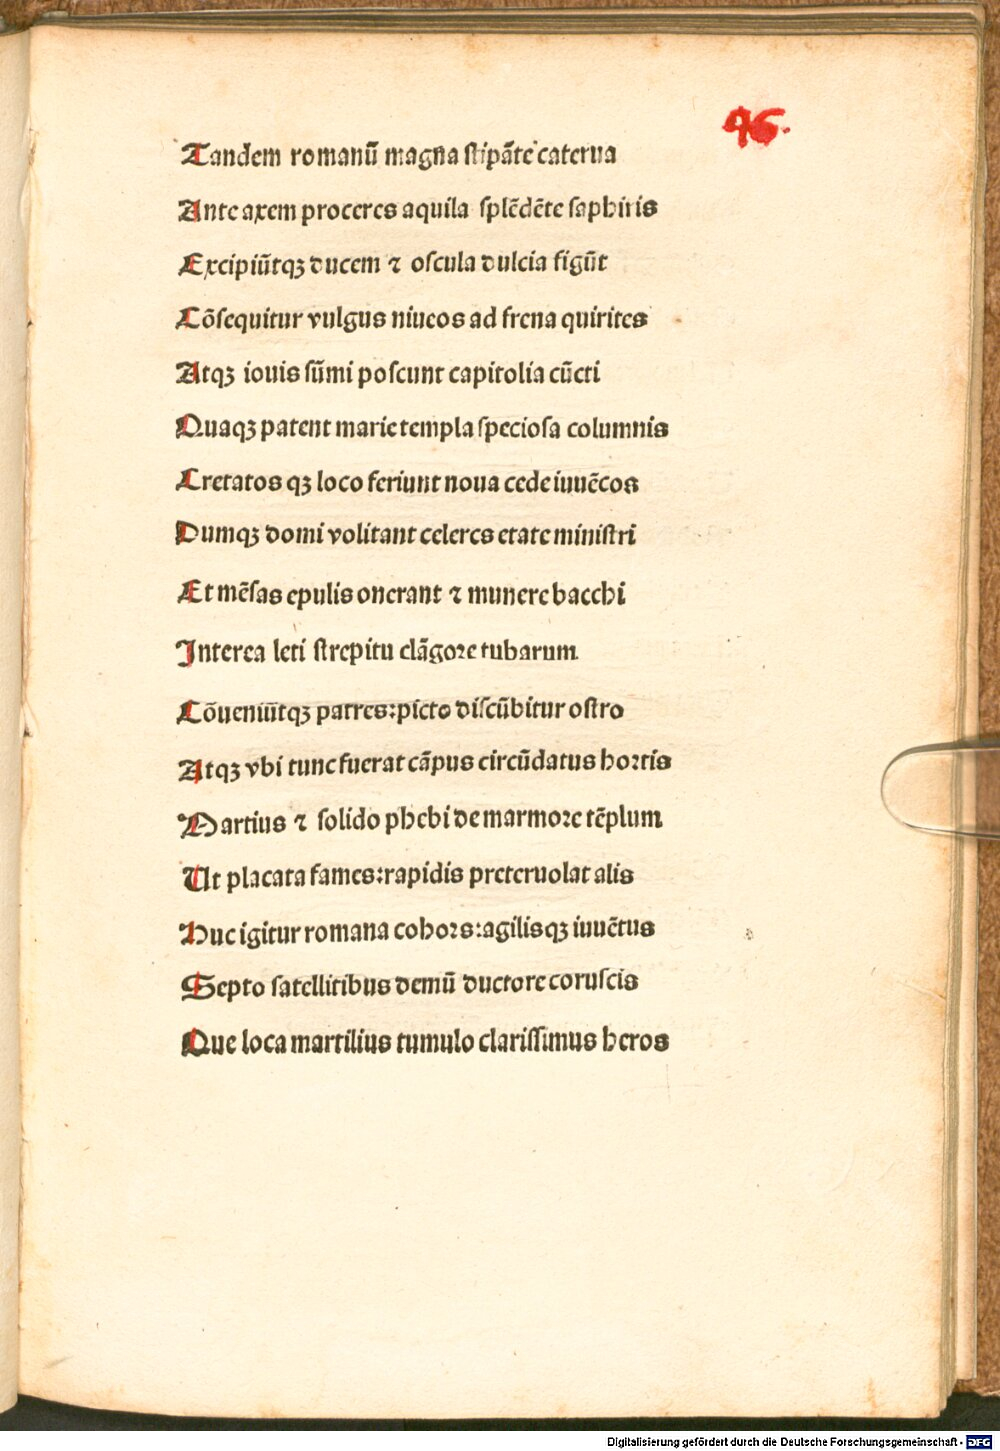 96.
Tandem romanū magna stipāte caterua
Ante axem proceres aquila splēdēte saphiris
Excipiūtqꝫ ducem ⁊ oscula dulcia figūt
Cōsequitur vulgus niueos ad frena quirites
Atqꝫ iouis sūmi poscunt capitolia cūcti
Quaqꝫ patent marie templa speciosa columnis
Cretatos qꝫ loco feriunt noua cede iuuēcos
Dumqꝫ domi volitant celeres etate ministri
Et mēsas epulis onerant ⁊ munere bacchi
Interea leti strepitu clāgore tubarum
Cōueniūtqꝫ patres:picto discūbitur ostro
Atqꝫ vbi tunc fuerat cāpus circūdatus hortis
Martius ⁊ solido phebi de marmore tēplum
Ut placata fames:rapidis preteruolat alis
Huc igitur romana cohors:agilisqꝫ iuuētus
Septo satellitibus demū ductore coruscis
Que loca martilius tumulo clarissimus heros
Digitalisierung gefördert durch die Deutsche Forschungsgemeinschaft - DFG